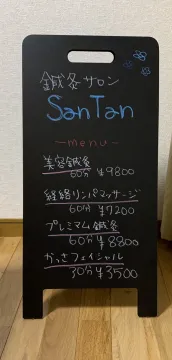 鍼灸サロン
SanTan
~menu~
美容鍼灸
60分 ¥9800
経絡リンパマッサージ
60分 ¥7200
プレミアム鍼灸
60分 ¥8800
かっさフェイシャル
30分 ¥3500